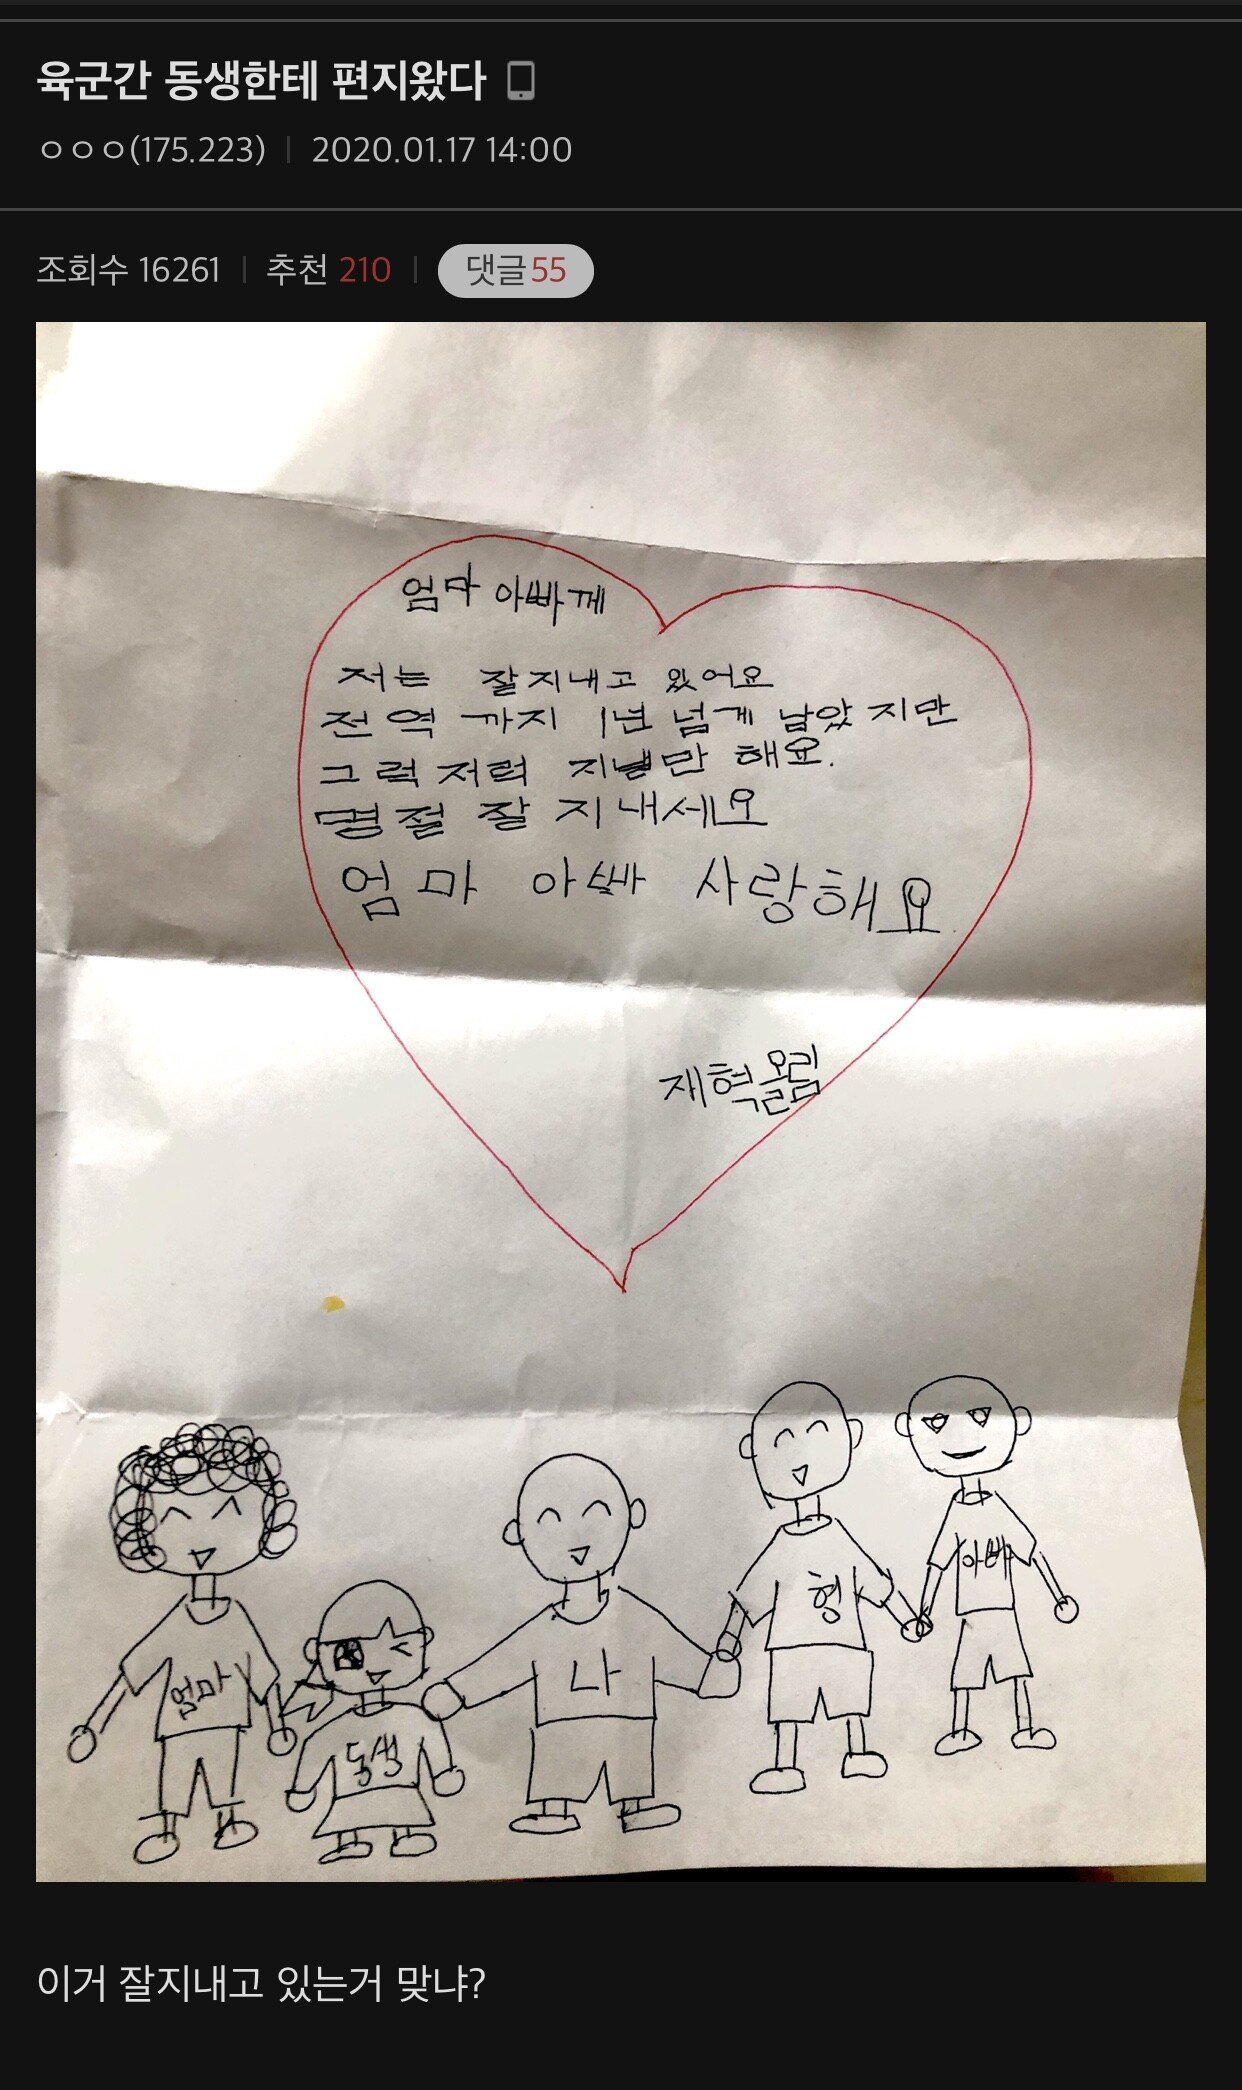 육군간 동생한테 편지왔다
ㅇㅇㅇ(175.223) | 2020.01.17 14:00
조회수 16261 | 추천 210 | 댓글 55
엄마 아빠께
저는 잘지내고 있어요
전역 까지 1년 넘게 남았지만
그럭저럭 지낼만 해요.
명절 잘 지내세요
엄마 아빠 사랑해요
재혁올림
엄마
동생
나
형
아빠
이거 잘지내고 있는거 맞냐?